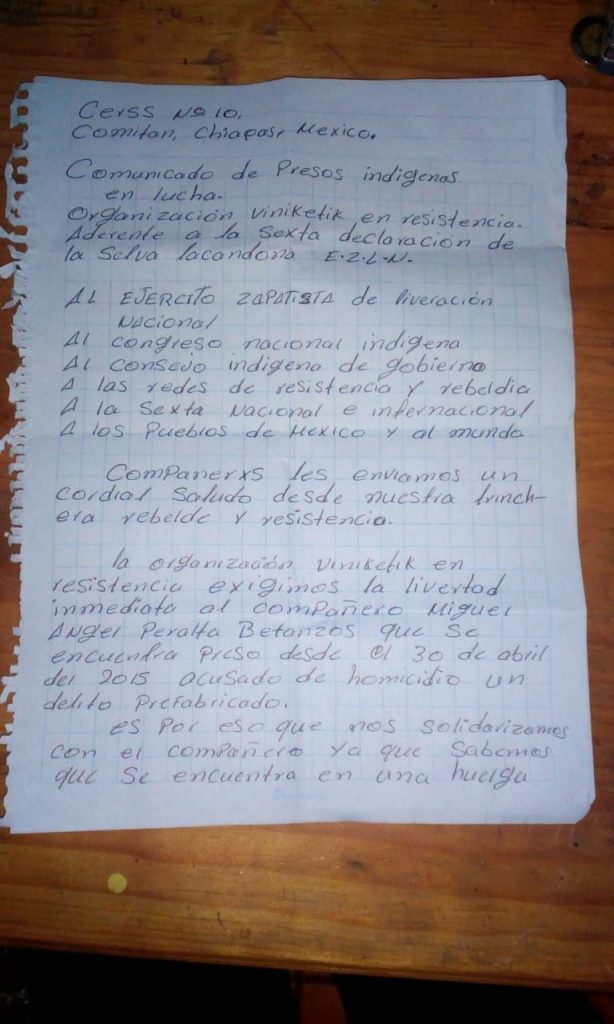 Cerss Nº 10.
Comitan, Chiapas, Mexico.
Comunicado de Presos indigenas
en lucha.
Organización Viniketik en resistencia.
Aderente a la Sexta declaración de
la Selva lacandona E.Z.L.N.
AL EJERCITO ZAPATISTA de liveración
Nacional
Al congreso nacional indigena
Al consejo indigena de gobierno
A las redes de resistencia y rebeldia
A la Sexta Nacional e internacional
A los Pueblos de Mexico y al mundo
Compañerxs les enviamos un
cordial Saludo desde nuestra trinch-
era rebelde y resistencia.
la organización viniketik en
resistencia exigimos la livertad
inmediata al compañero Miguel
Angel Peralta Betanzos que Se
encuentra Preso desde el 30 de abril
del 2015 acusado de homicidio un
delito Prefabricado.
es Por eso que nos solidarizamos
con el compañero ya que Sabemos
que Se encuentra en una huelga